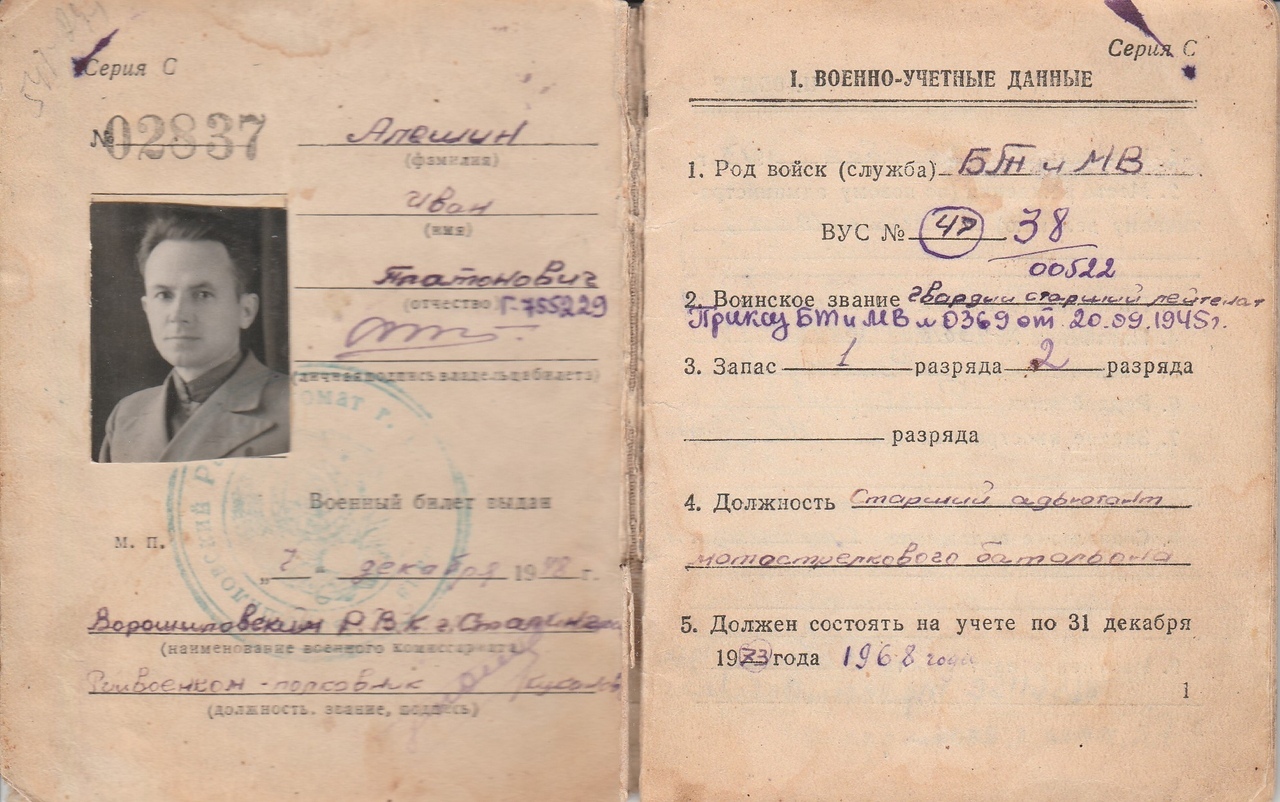 Серия С
№ 02837
Алешин
(фамилия)
Иван
(имя)
Платонович
(отчество) Г-755229
(личная подпись владельца билета)
Военный билет выдан
М. П.
„7 декабря 1948 г.
Ворошиловским Р.В.К г. Сталингра
(наименование военного комиссариата)
Райвоенком - полковник
(должность, звание, подпись)
Серия С
I. ВОЕННО-УЧЕТНЫЕ ДАННЫЕ
1. Род войск (служба) БТ и МВ
ВУС № 47 38
00522
2. Воинское звание гвардии старший лейтенат
Приказ БТ и МВ № 0369 от 20.09.1945 г.
3. Запас 1 разряда 2 разряда
разряда
4. Должность Старший адьютант
мотострелкового батальона
5. Должен состоять на учете по 31 декабря
1973 года 1968 года
1